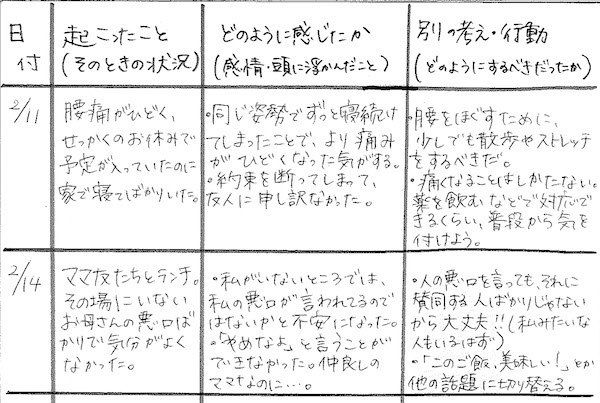 日付
起こったこと
(そのときの状況)
どのように感じたか
(感情・頭に浮かんだこと)
別の考え・行動
(どのようにするべきだったか)
2/11
腰痛がひどく、
せっかくのお休みで
予定が入っていたのに
家で寝てばかりいた。
・同じ姿勢でずっと寝続け
てしまったことで、より痛み
がひどくなった気がする。
・約束を断ってしまって、
友人に申し訳なかった。
・腰をほぐすために、
少しでも散歩やストレッチ
をするべきだ。
・痛くなることはしかたない。
薬を飲むなどで対応で
きるくらい、普段から気を
付けよう。
2/14
ママ友たちとランチ。
その場にいない
お母さんの悪口ば
かりで気分がよく
なかった。
・私がいないところでは、
私の悪口が言われてるので
はないかと不安になった。
・「やめなよ」と言うことが
できなかった。仲良しの
ママなのに…。
・人の悪口を言っても、それに
賛同する人ばかりじゃない
から大丈夫!!(私みたいな
人もいるはず)
・「このご飯、美味しい!」とか
他の話題に切り替える。